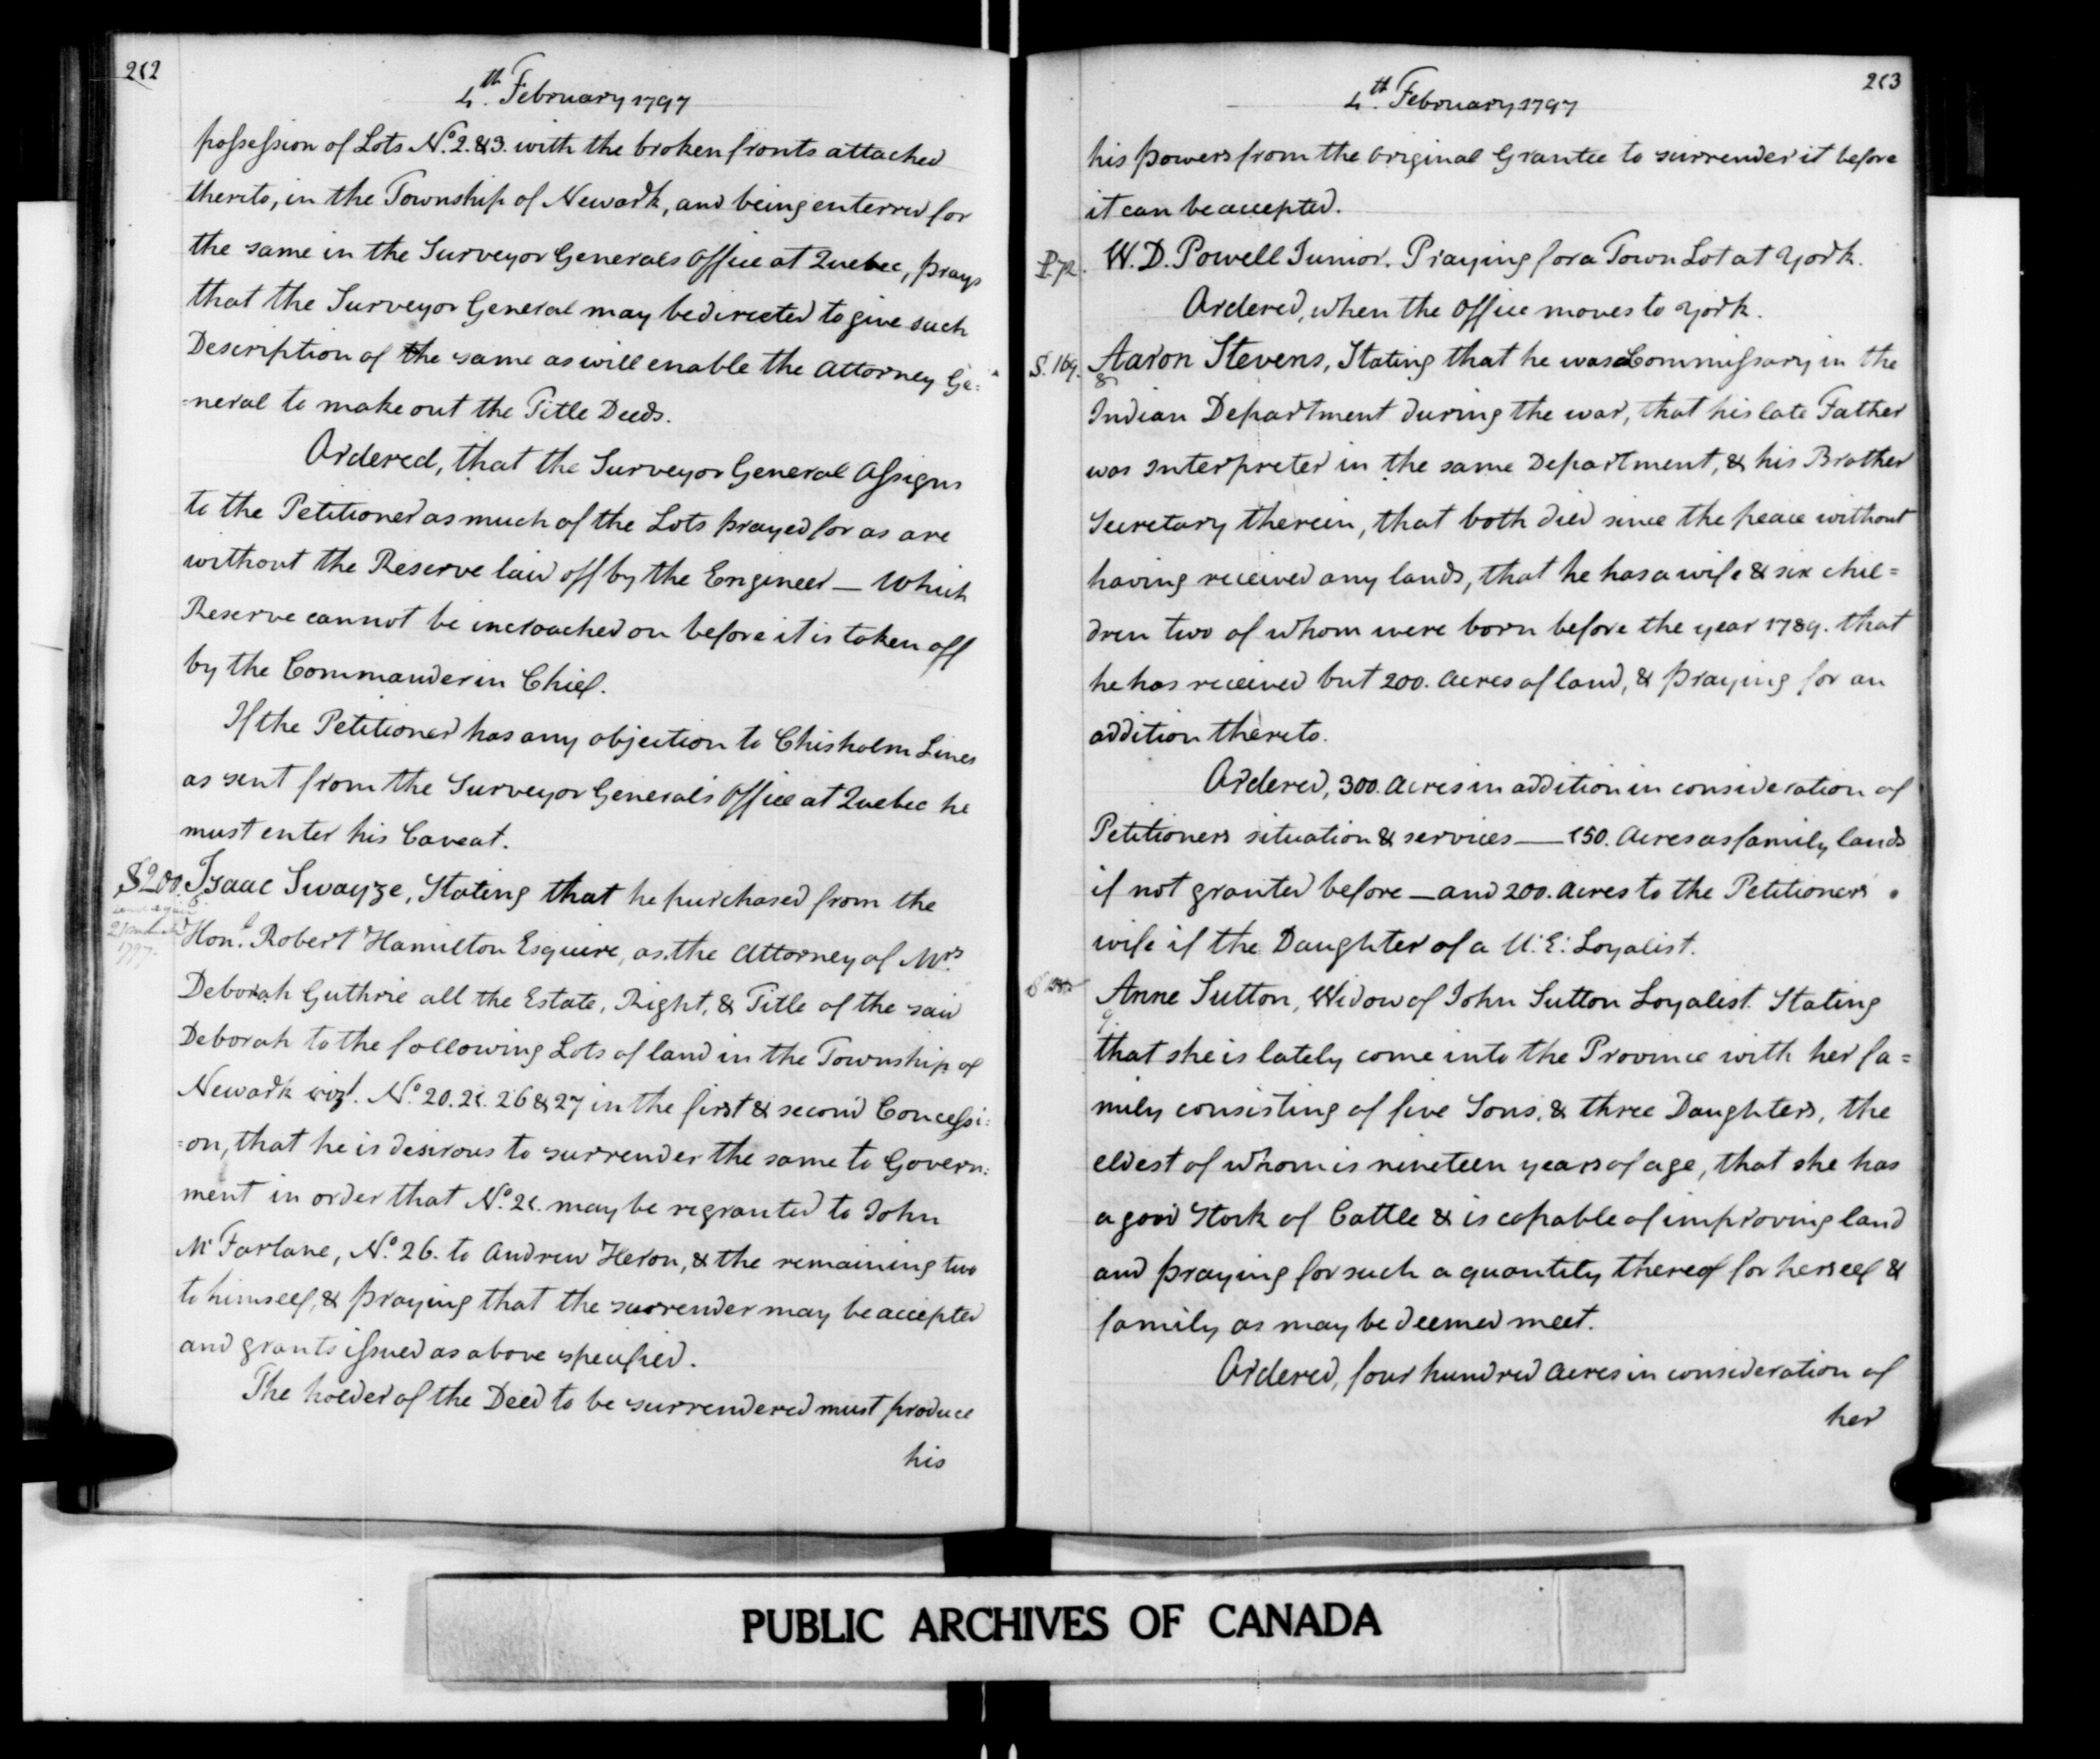 212
4th. February 1797
possession of Lots No. 2. & 3. with the broken fronts attached
thereto, in the Township of Newark, and being enterred for
the same in the Surveyor Generals Office at Quebec, prays
that the Surveyor General may be directed to give such
Description of the same as will enable the Attorney Ge=
=neral to make out the Title Deeds.
Ordered, that the Surveyor General Assigns
to the Petitioner as much of the Lots prayed for as are
without the Reserve laid off by the Engineer — Which
Reserve cannot be incroached on before it is taken off
by the Commander in Chief.
If the Petitioner has any objection to Chisholm Lines
as sent from the Surveyor General's Office at Quebec he
must enter his Caveat.
S200. Isaac Swayze, Stating that he purchased from the
Honl. Robert Hamilton Esquire, as the Attorney of Mrs.
1797.
Deborah Guthrie all the Estate, Right, & Title of the said
Deborah to the following Lots of land in the Township of
Newark vizt. No. 20. 21. 26 & 27 in the first & second Concessi=
=on, that he is desirous to surrender the same to Govern=
ment in order that No. 21. may be regranted to John
Mc Farlane, No. 26. to Andrew Heron, & the remaining two
to himself, & praying that the surrender may be accepted
and grants issued as above specified.
The holder of the Deed to be surrendered must produce
his
213
4th. February 1797
his powers from the Original Grantee to surrender it before
it can be accepted.
P 72. W. D. Powell Junior. Praying for a Town Lot at York.
Ordered, when the Office moves to York.
S. 169. Aaron Stevens, Stating that he was a Commissary in the
8
Indian Department during the war, that his late Father
was Interpreter in the same Department, & his Brother
Secretary therein, that both died since the peace without
having received any lands, that he has a wife & six chil=
dren two of whom were born before the year 1789. that
he has received but 200. Acres of land, & praying for an
addition thereto.
Ordered, 300. Acres in addition in consideration of
Petitioners situation & services — 150. Acres as family lands
if not granted before — and 200. Acres to the Petitioners
wife if the Daughter of a U. E. Loyalist.
Anne Sutton, Widow of John Sutton Loyalist. Stating
9.
that she is lately come into the Province with her fa=
mily consisting of five Sons, & three Daughters, the
eldest of whom is nineteen years of age, that she has
a good Stock of Cattle & is capable of improving land
and praying for such a quantity thereof for herself &
family as may be deemed meet.
Ordered, four hundred Acres in consideration of
her
PUBLIC ARCHIVES OF CANADA